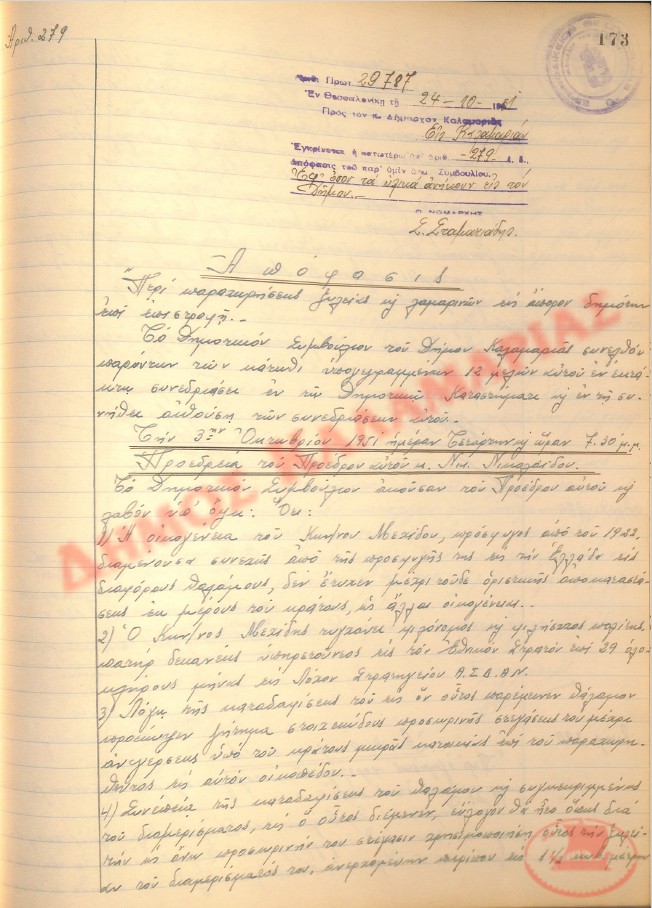 Αριθ. 279
173
Αριθ. Πρωτ. 29787
Ἐν Θεσσαλονίκη τῇ 24-10-1951
Πρὸς τὸν κ. Δήμαρχον Καλαμαριᾶς
Εἰς Καλαμαριάν
Ἐγκρίνεται ἡ κατωτέρω ὑπ' ἀριθ. -279- ἀ. ἔ.
ἀπόφασις τοῦ παρ' ὑμῖν Δημ. Συμβουλίου.
Ἐφ' ὅσον τὰ ὑλικὰ ἀνήκουν εἰς τὸν
Δῆμον.-
Ο ΝΟΜΑΡΧΗΣ
Σ. Σταματιάδης
Ἀπόφασις
"Περὶ παραχωρήσεως ξυλείας κ λαμαρινῶν εἰς ἄπορον δημότην
ἐπὶ ἐπιστροφῇ.-
Τὸ Δημοτικὸν Συμβούλιον τοῦ Δήμου Καλαμαριᾶς συνελθὸν
παρόντων τῶν κάτωθι ὑπογεγραμμένων 12 μελῶν αὐτοῦ ἐν ἐκτά-
κτῳ συνεδριάσει ἐν τῷ Δημοτικῷ Καταστήματι κ ἐν τῇ συ-
νήθει αἰθούσῃ τῶν συνεδριάσεων αὐτοῦ.
Τὴν 3ην Ὀκτωβρίου 1951 ἡμέραν Τετάρτην κ ὥραν 7.30 μ.μ.
Προεδρεία τοῦ Προέδρου αὐτοῦ κ. Νικ. Νικολαΐδου.
Τὸ Δημοτικὸν Συμβούλιον ἀκοῦσαν τοῦ Προέδρου αὐτοῦ κ
λαβὸν ὑπ' ὄψει: Ὅτι:
1) Ἡ οἰκογένεια τοῦ Κων/νου Μεχίδου, πρόσφυγος ἀπὸ τοῦ 1922
διαμένουσα συνεχῶς ἀπὸ τῆς προσφυγῆς της εἰς τὴν Ἑλλάδα εἰς
διαφόρους θαλάμους, δὲν ἔτυχεν μέχρι τοῦδε ὁριστικῆς ἀποκαταστά-
σεως ἐκ μέρους τοῦ κράτους, ὡς ἄλλαι οἰκογένειαι.-
2) Ὁ Κων/νος Μεχίδης τυγχάνει φιλόνομος κ φιλήσυχος πολίτης,
πατὴρ δεκανέως ὑπηρετοῦντος εἰς τὸν Ἐθνικὸν Στρατὸν ἐπὶ 29 ὁλο-
κλήρους μῆνας εἰς Λόχον Στρατηγείου Α.Σ.Δ.Α.Ν.
3) Λόγῳ τῆς κατεδαφίσεως τοῦ εἰς ὃν οὗτος παρέμενεν θαλάμου
προέκυψεν ζήτημα στοιχειώδους προσωρινῆς στεγάσεώς του μέχρι
ἀνεγέρσεως ὑπὸ τοῦ κράτους μικρᾶς κατοικίας ἐπὶ τοῦ παραχωρη-
θέντος εἰς αὐτὸν οἰκοπέδου.-
4) Συνεπείᾳ τῆς κατεδαφίσεως τοῦ θαλάμου κ συγκεκριμμένως
τοῦ διαμερίσματος, εἰς ὃ οὗτος διέμενεν, εὔλογον θὰ ἦτο ὅπως διὰ
τὴν προσωρινήν του στέγασιν χρησιμοποιήσῃ οὗτος τὴν ξυλεί-
αν τοῦ διαμερίσματός του, ἀνερχομένην περίπου εἰς 1½
ΔΗΜΟΣ ΚΑΛΑΜΑΡΙΑΣ